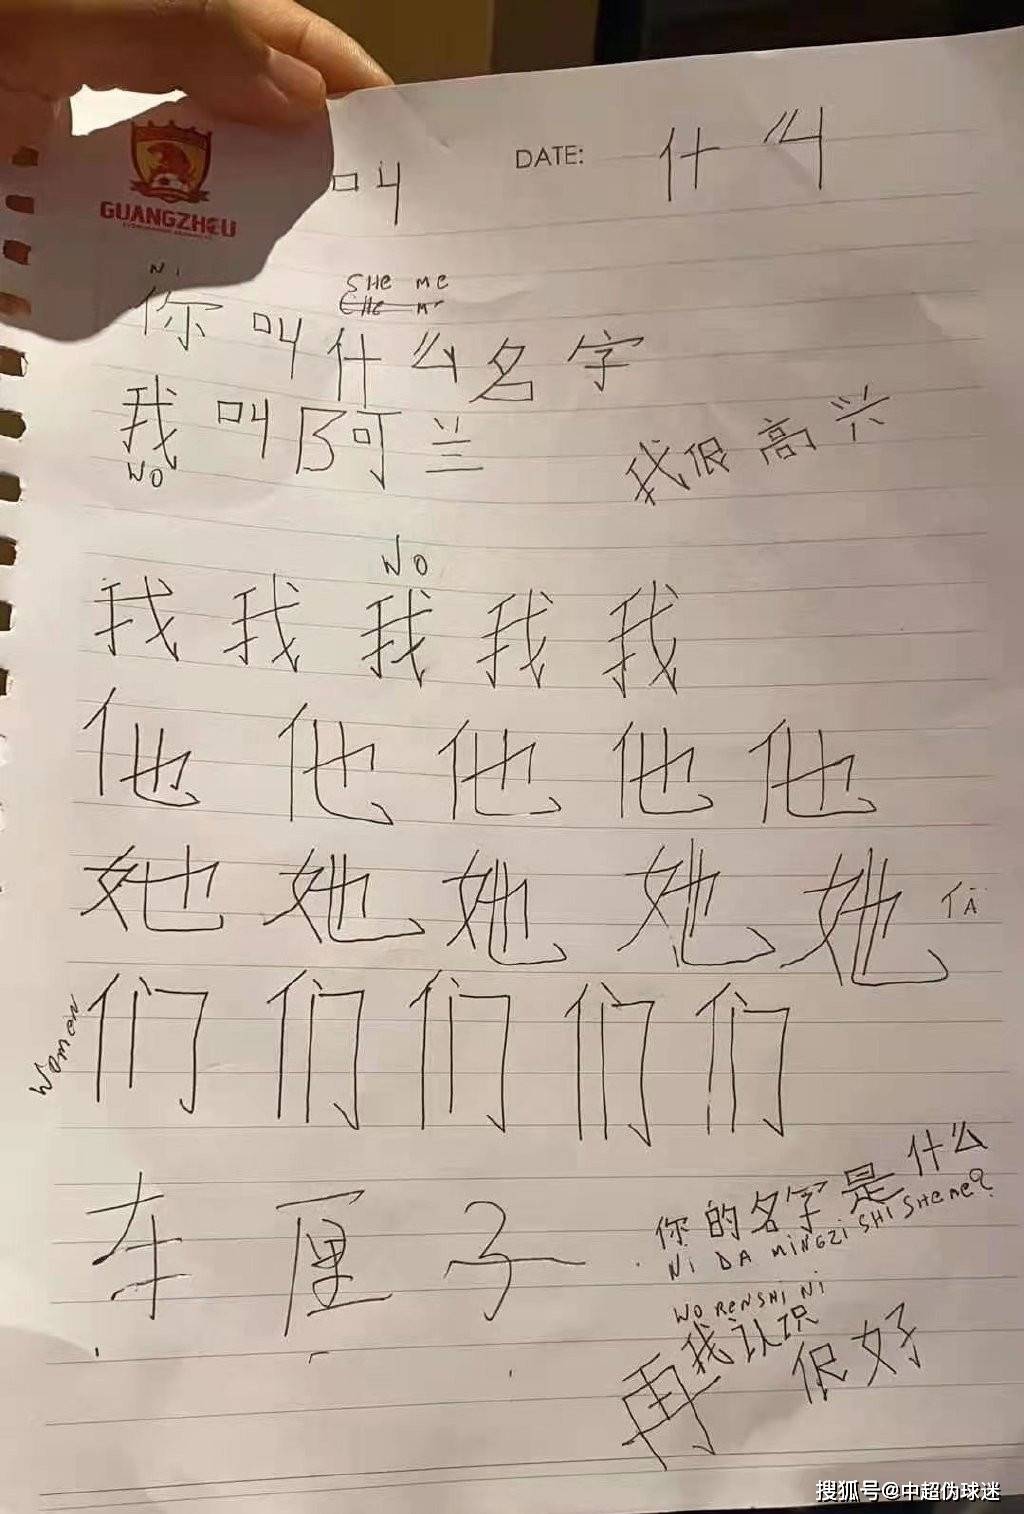 叫 DATE: 什么
GUANGZHOU
Ni SHe Me
CHe Me
你叫什么名字
我叫阿兰 我很高兴
WO
WO
我 我 我 我 我
他 他 他 他 他
她 她 她 她 她 TĀ
women 们 们 们 们 们
车厘子
你的名字是什么
Ni DA MiNGZi SHI SHeMe?
WO RenSHi Ni
我认识
再 很好
搜狐号@中超伪球迷